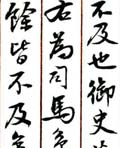 不及也御史
右為司馬
餘皆不及